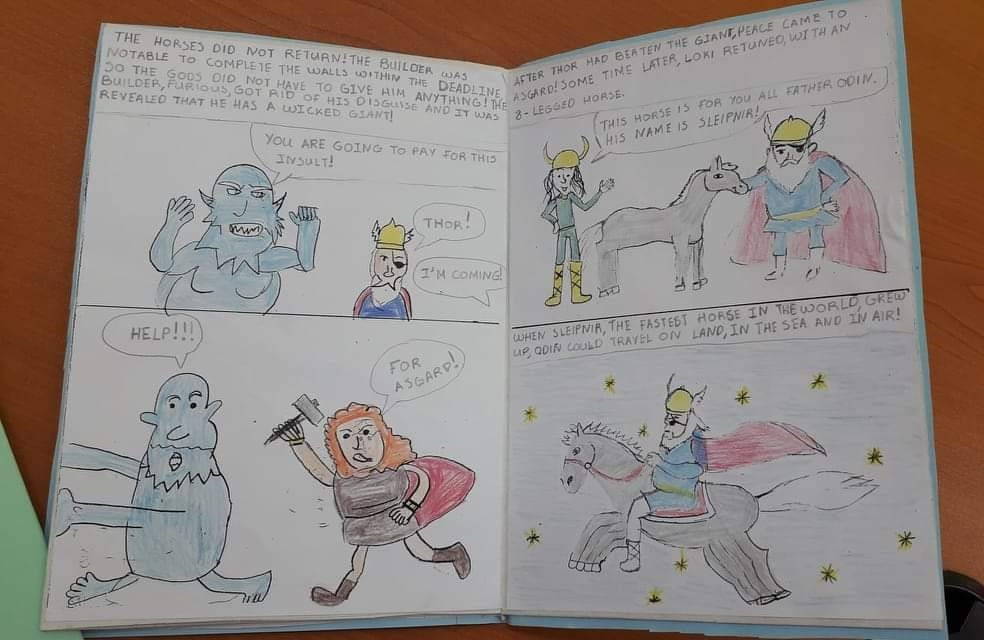 THE HORSES DID NOT RETURN! THE BUILDER WAS
NOTABLE TO COMPLETE THE WALLS WITHIN THE DEADLINE
SO THE GODS DID NOT HAVE TO GIVE HIM ANYTHING! THE
BUILDER, FURIOUS, GOT RID OF HIS DISGUISE AND IT WAS
REVEALED THAT HE HAS A WICKED GIANT!
YOU ARE GOING TO PAY FOR THIS
INSULT!
THOR!
I'M COMING!
HELP!!!
FOR
ASGARD!
AFTER THOR HAD BEATEN THE GIANT, PEACE CAME TO
ASGARD! SOME TIME LATER, LOKI RETUNED, WITH AN
8- LEGGED HORSE.
THIS HORSE IS FOR YOU ALL FATHER ODIN.
HIS NAME IS SLEIPNIR!
WHEN SLEIPNIR, THE FASTEST HORSE IN THE WORLD, GREW
UP, ODIN COULD TRAVEL ON LAND, IN THE SEA AND IN AIR!